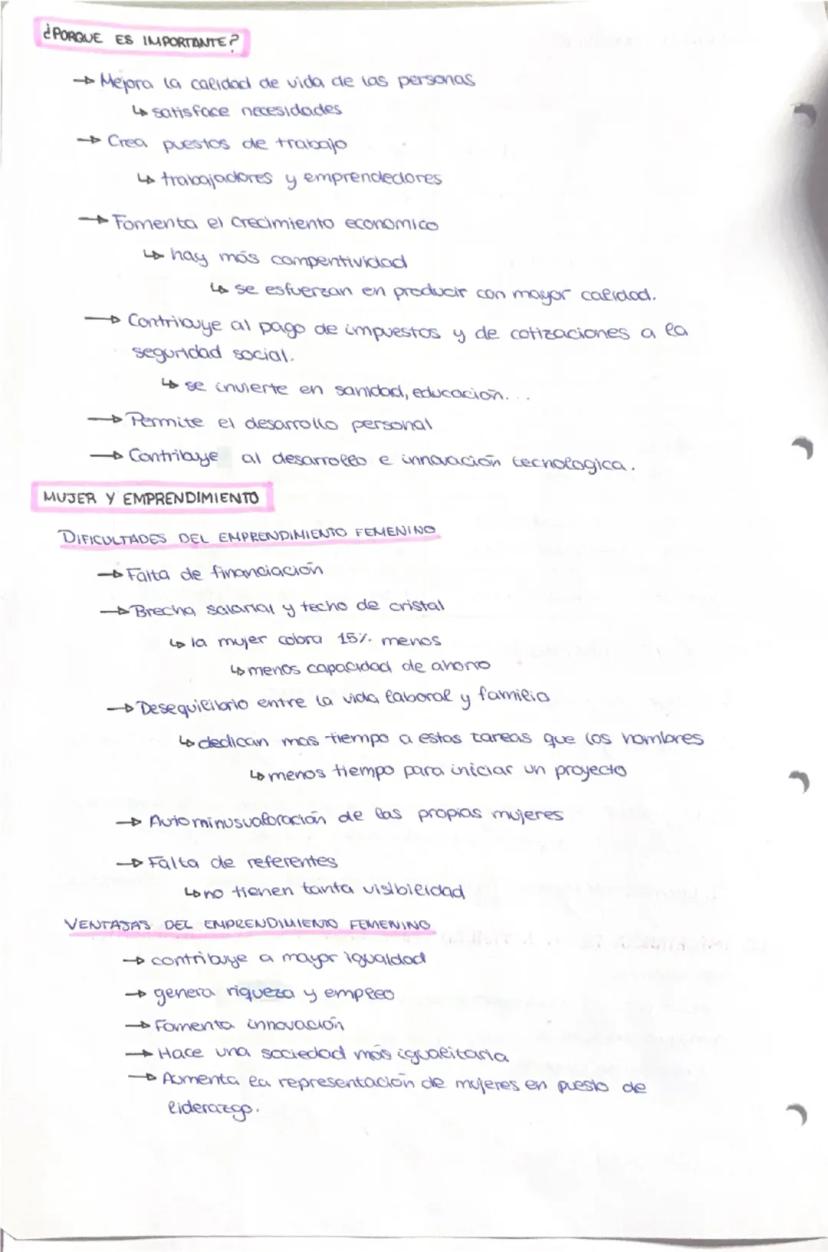 ¿PORQUE ES IMPORTANTE?
→ Mejora la calidad de vida de las personas
↳ satisface necesidades
→ Crea puestos de trabajo
↳ trabajadores y emprendedores
→ Fomenta el crecimiento economico
↳ hay más compentividad
↳ se esfuerzan en producir con mayor calidad.
→ Contribuye al pago de impuestos y de cotizaciones a la
seguridad social.
↳ se invierte en sanidad, educación...
→ Permite el desarrollo personal
→ Contribuye al desarrollo e innovación tecnologica.
MUJER Y EMPRENDIMIENTO
DIFICULTADES DEL EMPRENDIMIENTO FEMENINO
→ Falta de financiación
→ Brecha salarial y techo de cristal
↳ la mujer cobra 15% menos
↳ menos capacidad de ahorro
→ Desequilibrio entre la vida laboral y familia
↳ dedican mas tiempo a estas tareas que los hombres
↳ menos tiempo para iniciar un proyecto
→ Autominusvaloración de las propias mujeres
→ Falta de referentes
↳ no tienen tanta visibilidad
VENTAJAS DEL EMPRENDIMIENTO FEMENINO
→ contribuye a mayor igualdad
→ genera riqueza y empleo
→ Fomenta innovación
→ Hace una sociedad más igualitaria
→ Aumenta la representación de mujeres en puesto de
liderazgo.